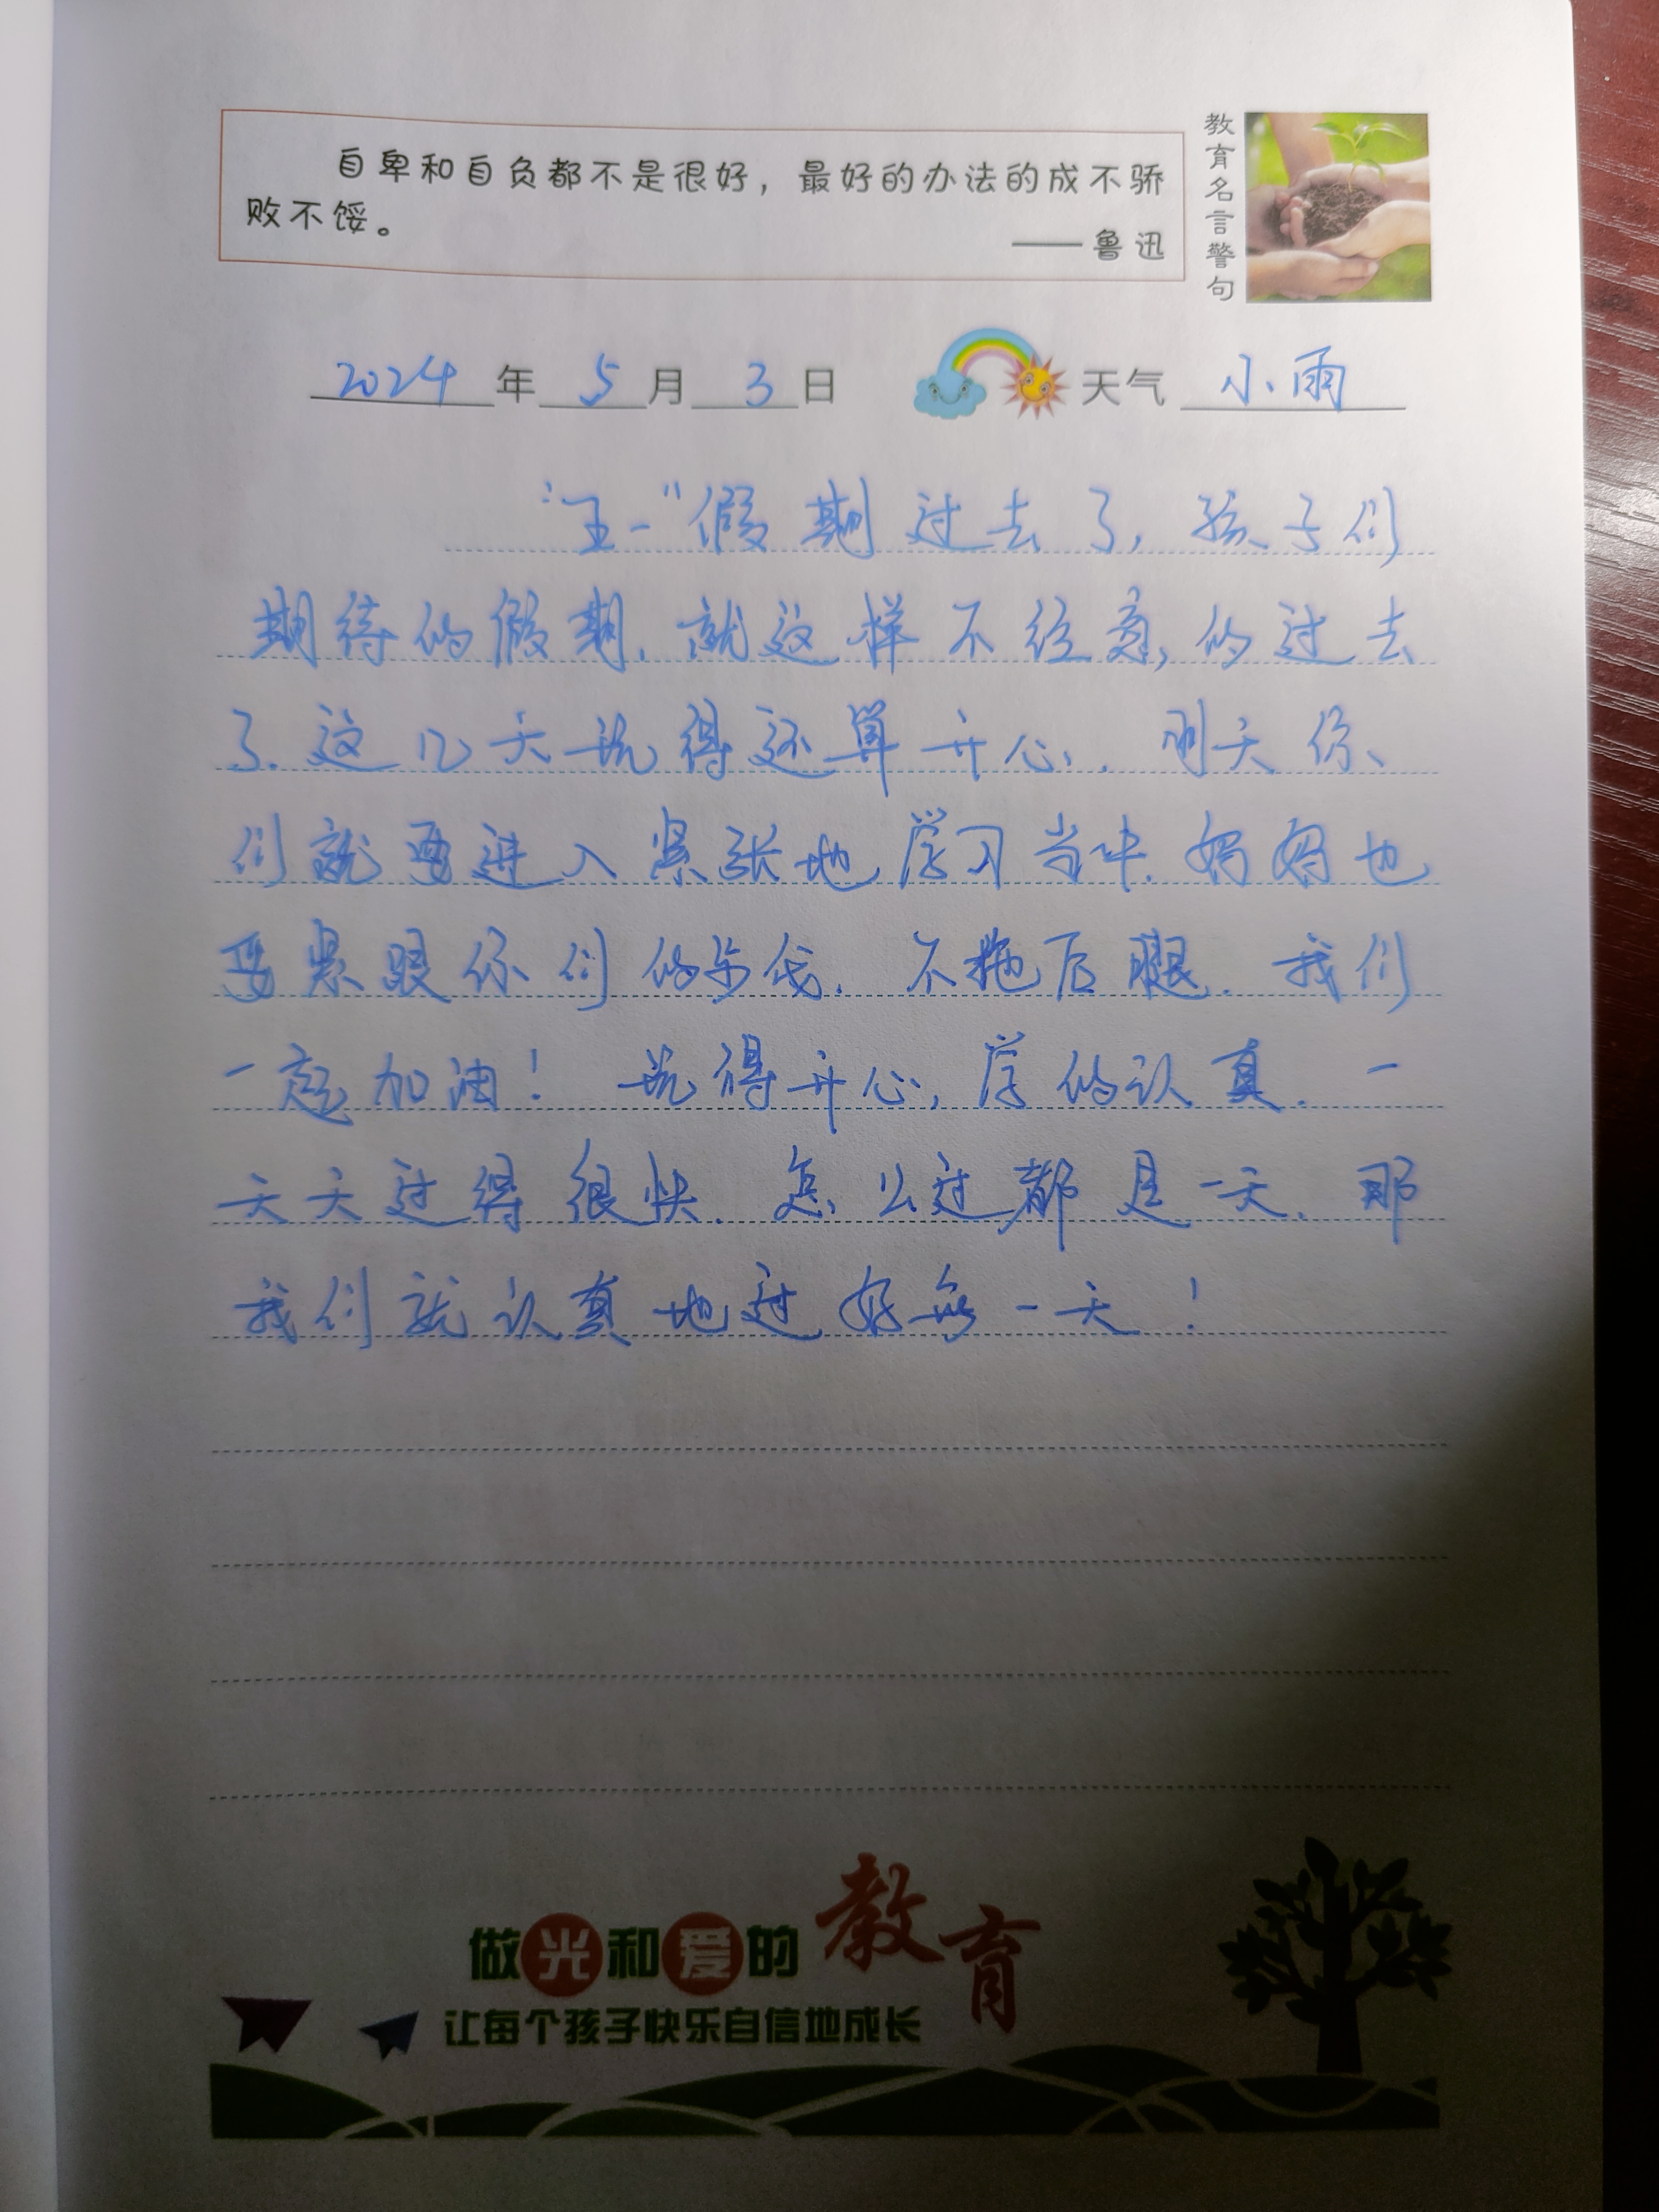 自卑和自负都不是很好，最好的办法的成不骄
败不馁。
——鲁迅
教育名言警句
2024年5月3日 天气 小雨
“五一”假期过去了，孩子们
期待的假期，就这样不经意，的过去
了.这几天玩得还算开心，明天你
们就要进入紧张地学习当中.妈妈也
要紧跟你们的步伐.不拖后腿.我们
一起加油！玩得开心，学的认真.一
天天过得很快.怎么过都是一天.那
我们就认真地过好每一天！
做光和爱的教育
让每个孩子快乐自信地成长